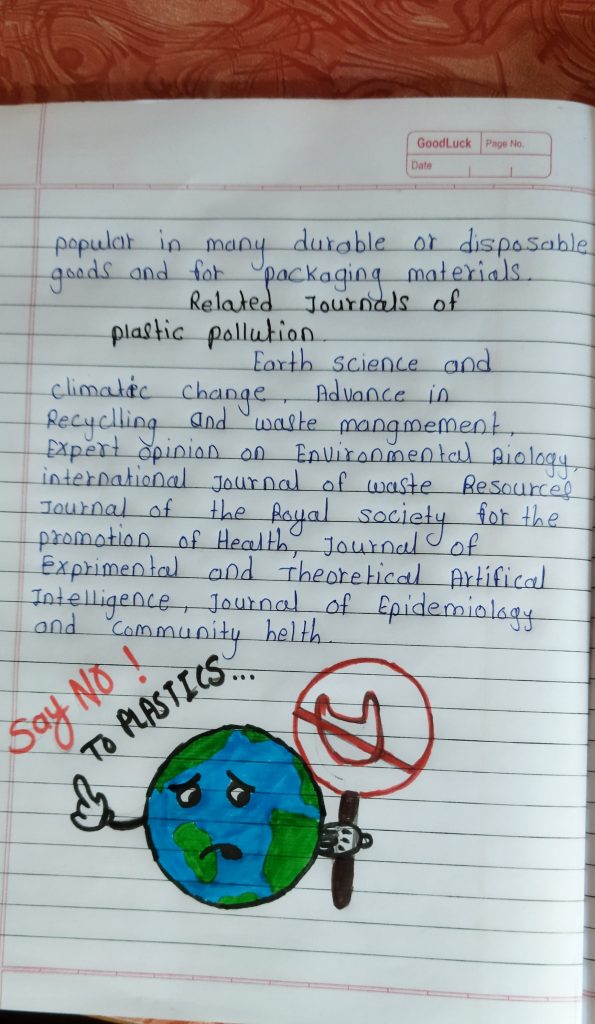 GoodLuck
Page No.
Date
popular in many durable or disposable
goods and for packaging materials.
Related Journals of
plastic pollution.
Earth science and
climatic change, Advance in
Recyclling and waste mangmement,
Expert opinion on Environmental Biology,
international Journal of waste Resources
Journal of the Royal society for the
promotion of Health, Journal of
Exprimental and Theoretical Artifical
Intelligence, Journal of Epidemiology
and community helth.
Say NO !
TO PLASTICS...